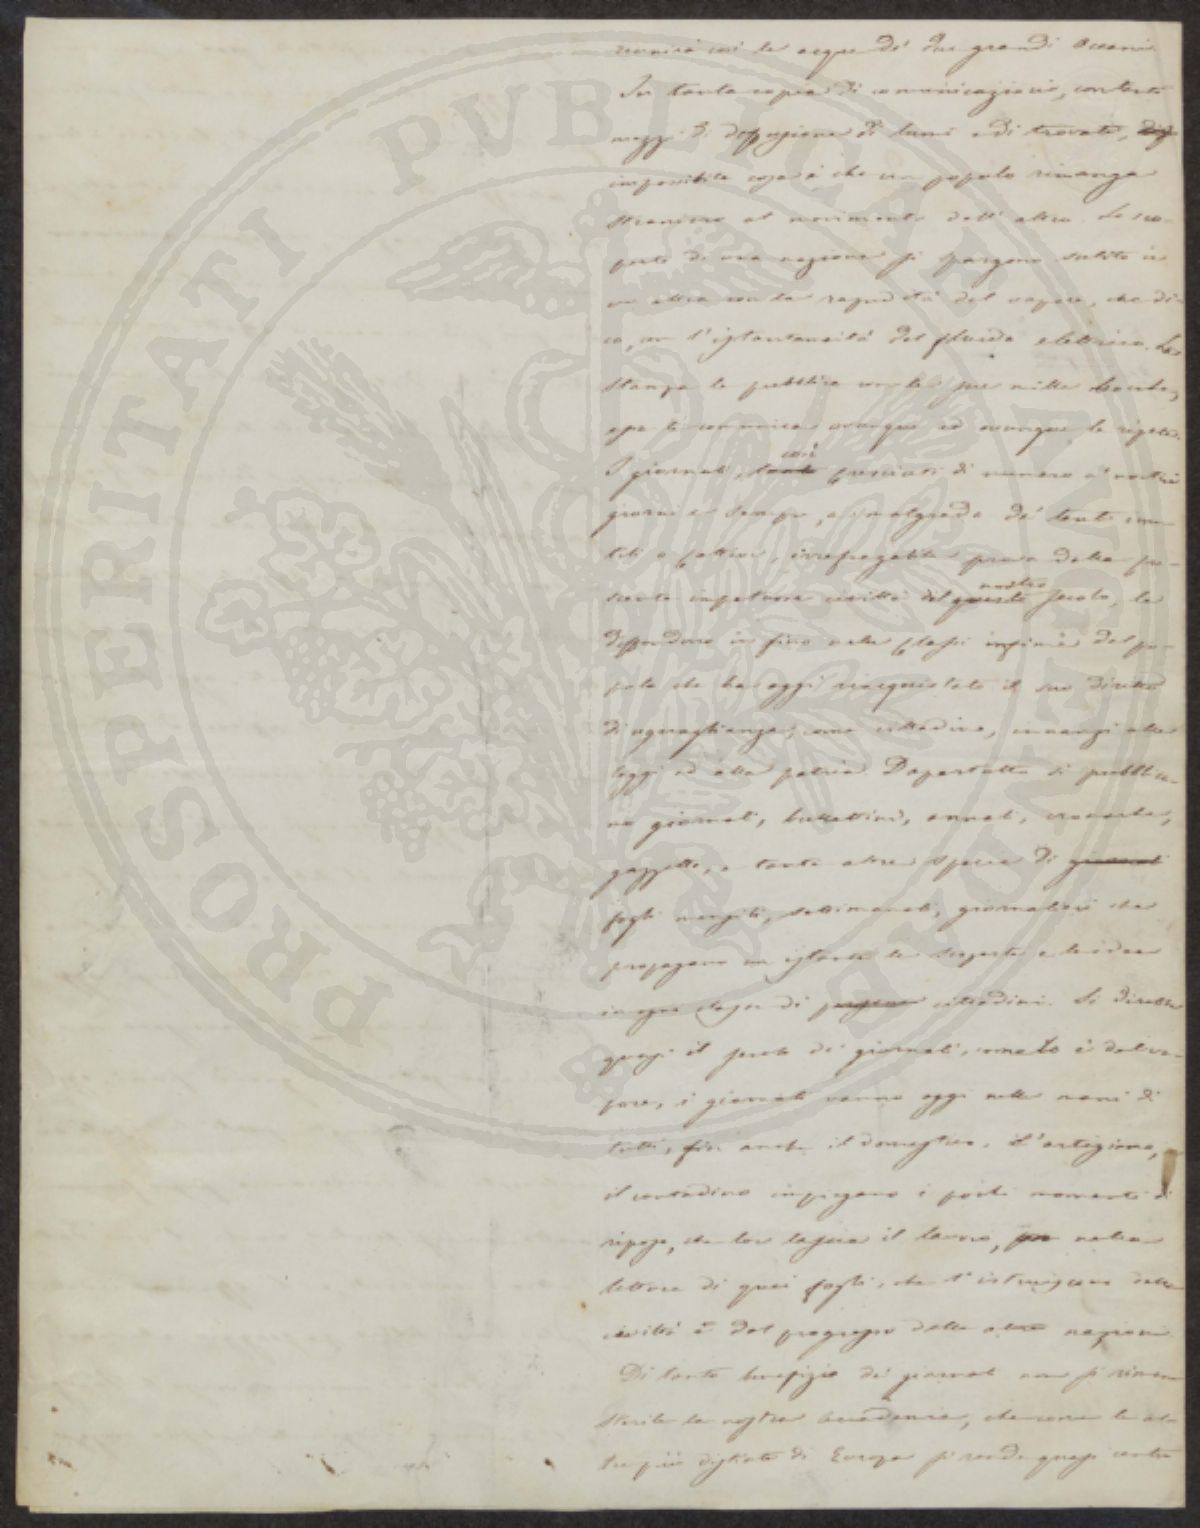 PROSPERITATI PUBLICAE AUGENDAE
riunirà così le acque de' due grandi Oceani.
In tanta copia di comunicazioni, con tanti
mezzi di diffusione di lumi e di trovati,
impossibile cosa è che un popolo rimanga
straniero al movimento dell' altro. Le sco-
perte di una nazione si spargono subito in
un altra con la rapidità del vapore, che di-
co, con l'istantaneità del fluido elettrico. La
stampa le pubblica con le sue mille bocche,
essa le comunica ovunque ed ovunque le ripete.
I giornali, tanto così cresciuti di numero a' nostri
giorni e sempre, a malgrado de' tanti inu-
tili o cattivi, irrefragabile prova della cre-
scente civiltà del questo nostro secolo, le
diffondono in fino nelle classi infime del po-
polo che ha oggi riacquistato il suo diritto
di uguaglianza, come cittadino, innanzi alle
leggi ed alla patria. Dapertutto si pubblica-
no giornali, bullettini, annali, cronache,
gazzette, e tante altre specie di giornali
fogli mensili, settimanali, giornalieri che
propagano in istante le scoperte e le idee
in ogni classe di persone cittadini. Si direbbe
quasi il secolo dei giornali, come lo è del va-
pore, i giornali vanno oggi nelle mani di
tutti, fin anche il domestico, l'artigiano,
il contadino impiegano i pochi momenti di
riposo, che lor lascia il lavoro, nella
lettura di quei fogli, che l'istruiscono della
civiltà e del progresso delle altre nazioni.
Di tanto benefizio dei giornali non si rimane
sterile la nostra Accademia, che come le al-
tre più distinte di Europa si rende quasi centro